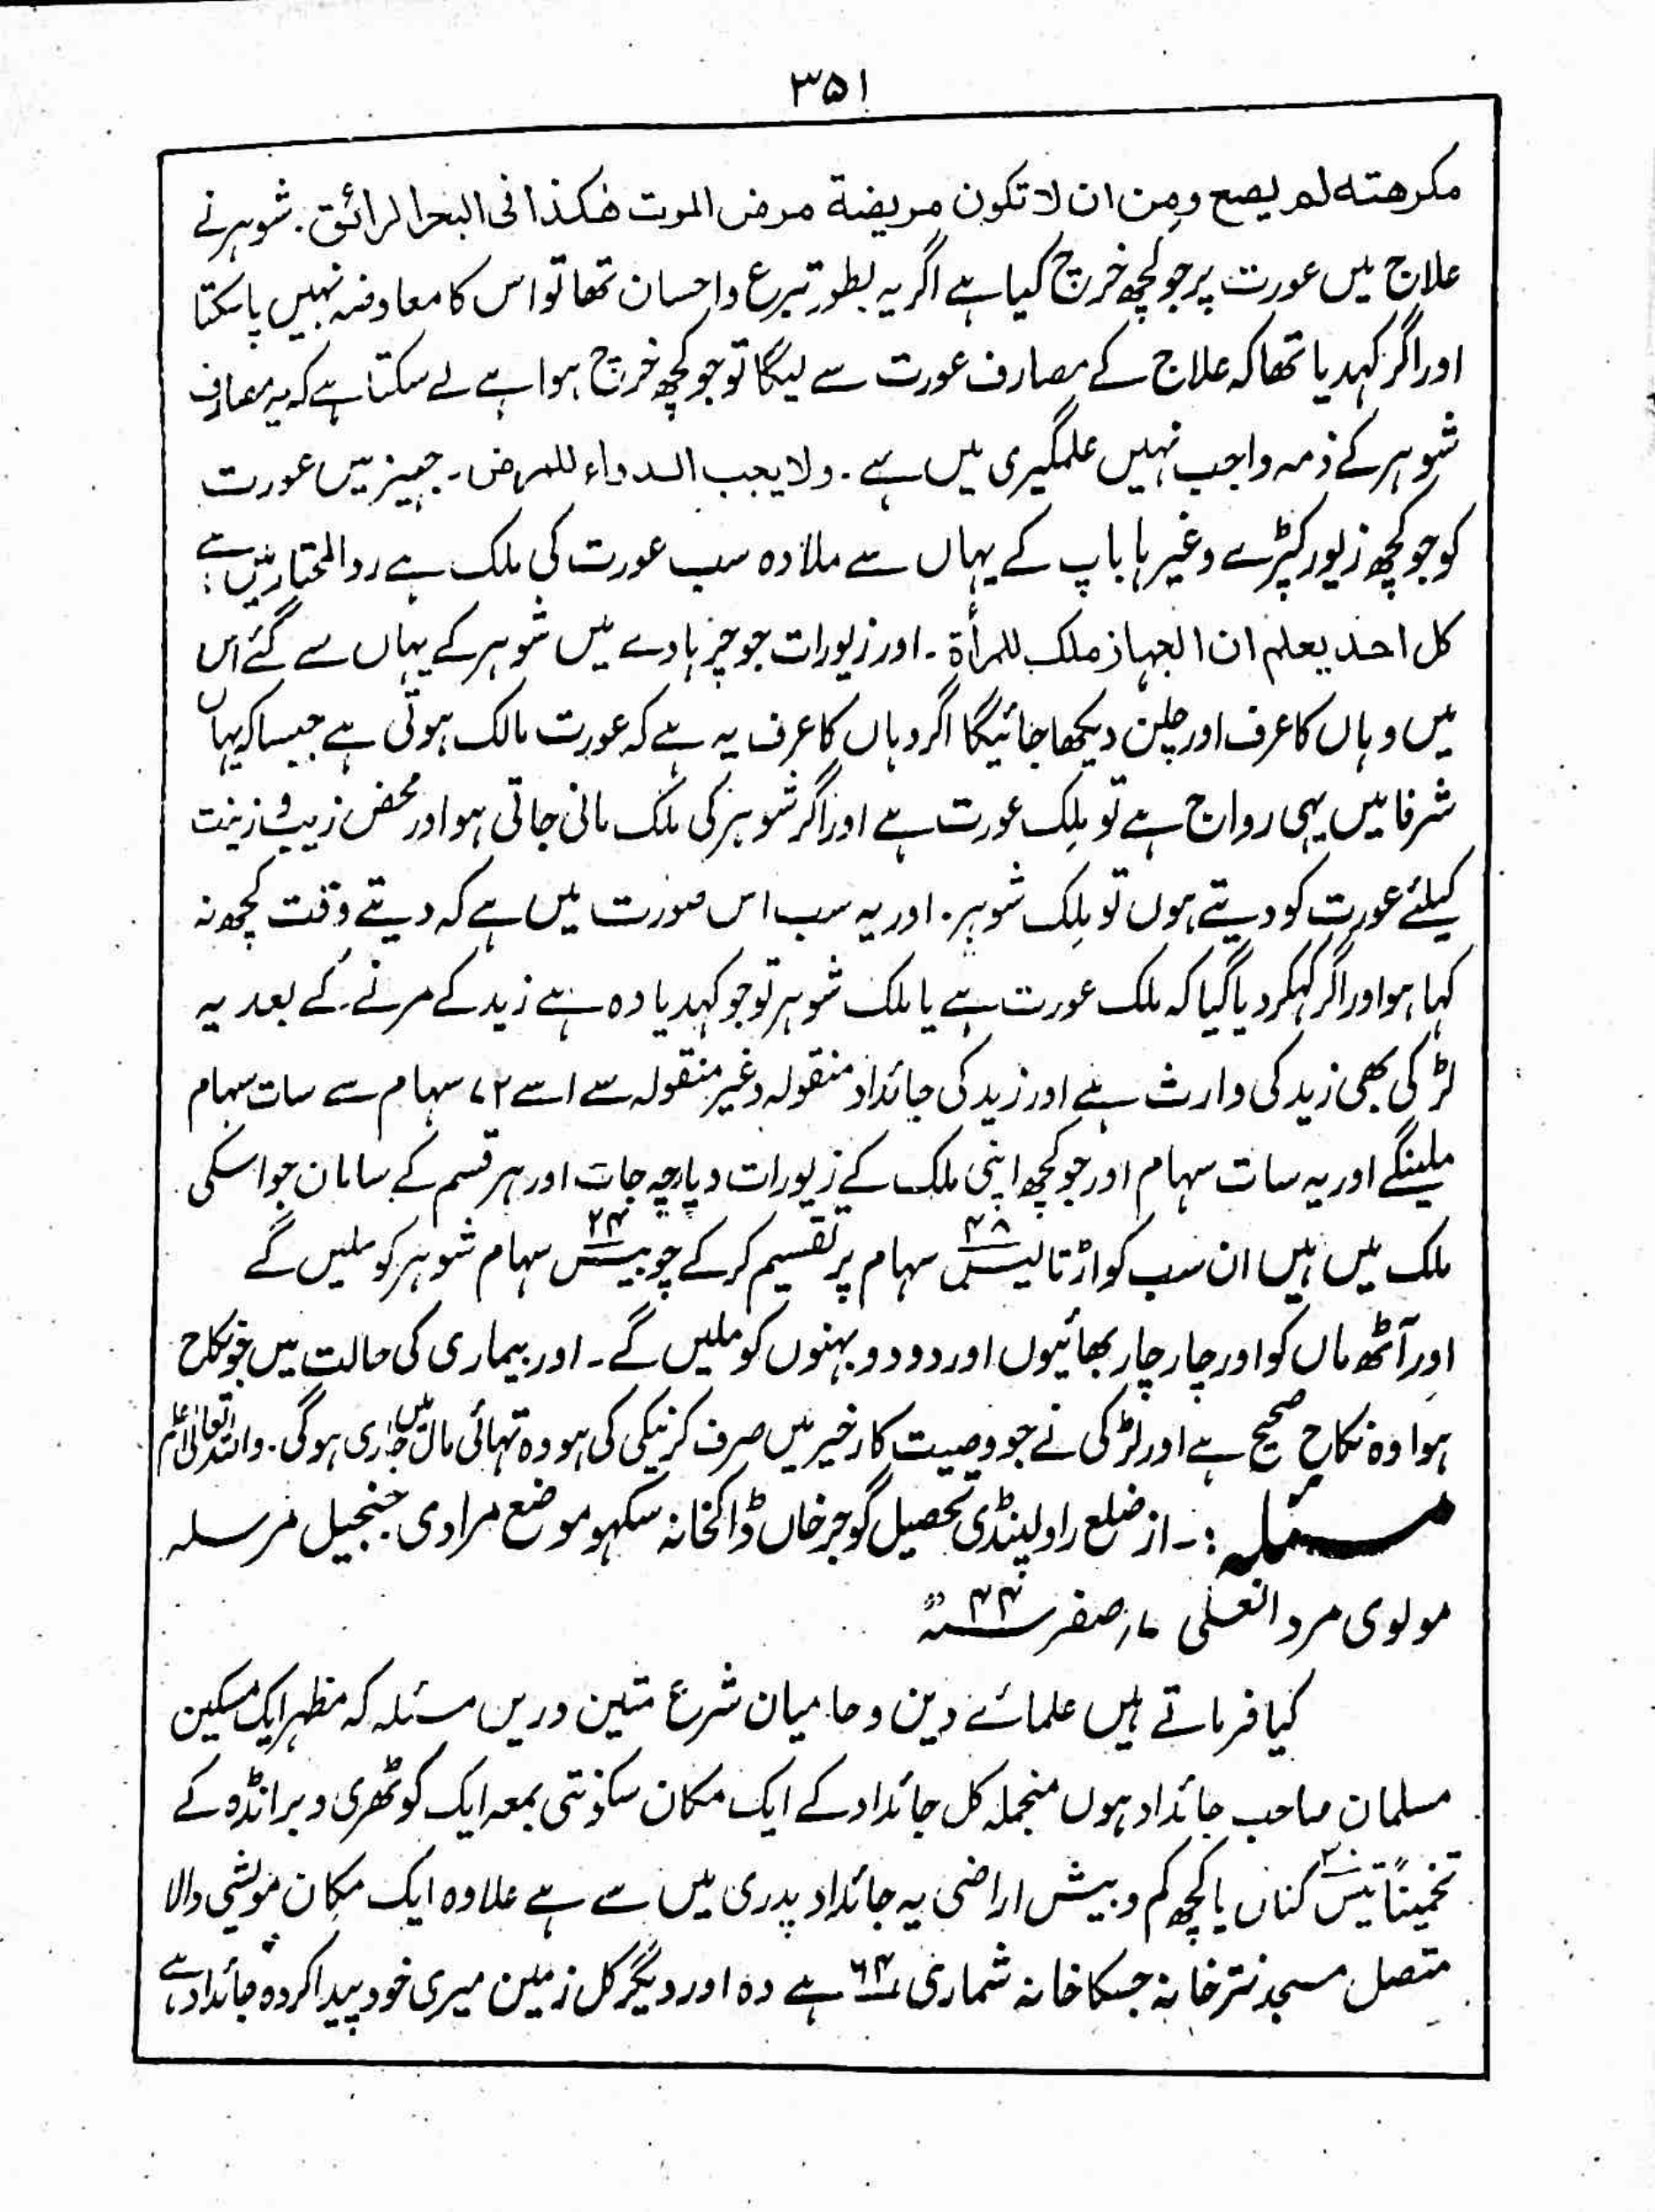 ۳۵۱
مکرهته لم یصح ومن ان لا تکون مریضة مرض الموت هکذا فی البحر الرائق۔ شوہر نے
علاج میں عورت پر جو کچھ خرچ کیا ہے اگر یہ بطور تبرع واحسان تھا تو اس کا معاوضہ نہیں پاسکتا
اور اگر کہدیا تھا کہ علاج کے مصارف عورت سے لیگا تو جو کچھ خرچ ہوا ہے لے سکتا ہے کہ یہ مصارف
شوہر کے ذمہ واجب نہیں علمگیری میں ہے۔ ولا یجب الدواء للمرض۔ جہیز میں عورت
کو جو کچھ زیور کپڑے وغیرہا باپ کے یہاں سے ملا وہ سب عورت کی ملک ہے ردالمحتار میں ہے؛
کل احد یعلم ان الجہاز ملک للمرأة۔ اور زیورات جو چڑہاوے میں شوہر کے یہاں سے گئے اس
میں وہاں کا عرف اور چلن دیکھا جائیگا اگر وہاں کا عرف یہ ہے کہ عورت مالک ہوتی ہے جیسا کہ یہاں
شرفا میں یہی رواج ہے تو مِلک عورت ہے اور اگر شوہر کی ملک مانی جاتی ہو اور محض زیب و زینت
کیلئے عورت کو دیتے ہوں تو مِلک شوہر۔ اور یہ سب اس صورت میں ہے کہ دیتے وقت کچھ نہ
کہا ہو اور اگر کہکر دیا گیا کہ ملک عورت ہے یا ملک شوہر تو جو کہدیا وہ ہے زید کے مرنے کے بعد یہ
لڑکی بھی زید کی وارث ہے اور زید کی جائداد منقولہ وغیر منقولہ سے اسے ۷۲ سہام سے سات سہام
ملینگے اور یہ سات سہام اور جو کچھ اپنی ملک کے زیورات و پارچہ جات اور ہر قسم کے سامان جو اسکی
ملک میں ہیں ان سب کو اڑتالیس ۴۸ سہام پر تقسیم کرکے چوبیس ۲۴ سہام شوہر کو ملیں گے
اور آٹھ ماں کو اور چار چار بھائیوں اور دو دو بہنوں کو ملیں گے۔ اور بیماری کی حالت میں جو نکاح
ہوا وہ نکاح صحیح ہے اور لڑکی نے جو وصیت کار خیر میں صرف کرنیکی کی ہو وہ تہائی مال میں جاری ہوگی۔ واللہ تعالیٰ اعلم
مسئلہ :۔ از ضلع راولپنڈی تحصیل گوجر خاں ڈاکخانہ سکہو موضع مرادی جنجیل مرسلہ
مولوی مرد العلی صفر سنہ ۴۴
کیا فرماتے ہیں علمائے دین و حامیان شرع متین دریں مسئلہ کہ مظہر ایک مسکین
مسلمان صاحب جائداد ہوں منجملہ کل جائداد کے ایک مکان سکونتی بمعہ ایک کوٹھری و برانڈہ کے
تخمیناً کناں یا کچھ کم و بیش اراضی یہ جائداد پدری میں سے ہے علاوہ ایک مکان مویشی والا
متصل مسجد خانہ جسکا خانہ شماری ۶۴ ہے وہ اور دیگر کل زمین میری خود پیدا کردہ جائداد ہے